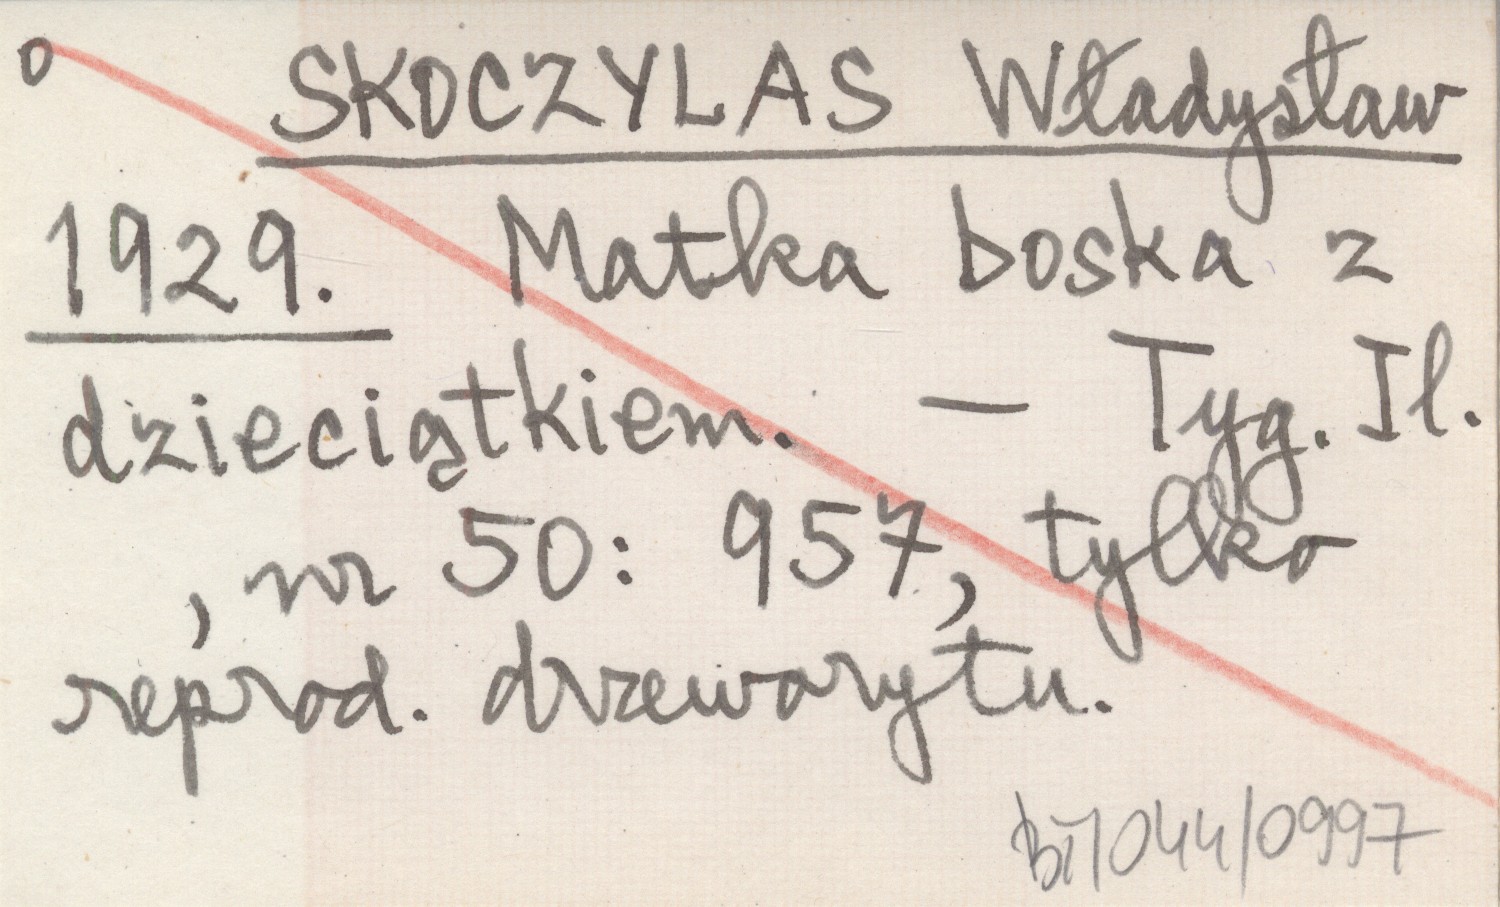 o SKOCZYLAS Władysław
1929. Matka boska z
dzieciątkiem. — Tyg. Il.
, nr 50: 957, tylko
reprod. drzeworytu.
bi/044/0997